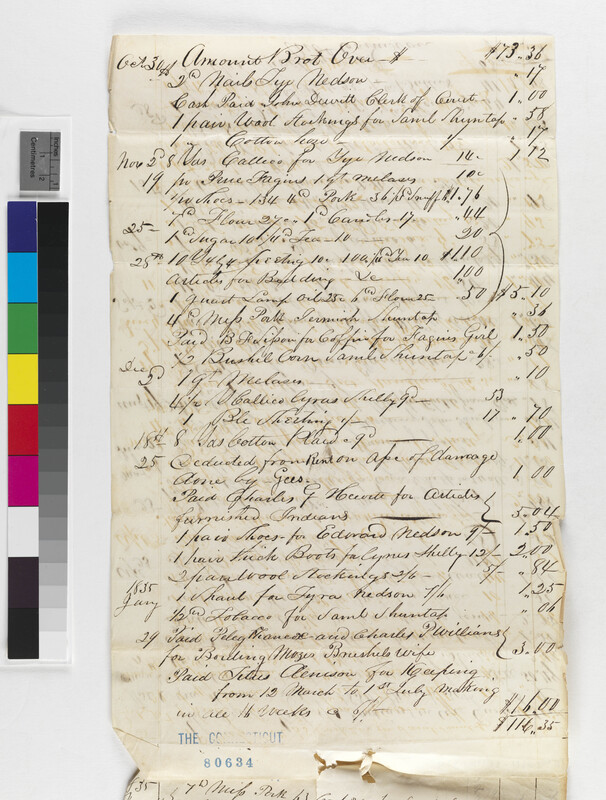 Oct 30th Amount Brot Over $ $73.36
2 d Nails Tyra Nedson " 17
Cash Paid John Dewitt Clerk of Court 1.00
1 pair Wool Stockings for Saml Shuntap " 58
1 " Cotton hose 1/ 17 1,72
Nov 2d 8 yds Callico for Tyra Nedson 14
19 pr Pene Fagins 1 qt melases 10
Shoes 134 4d Pork 36 Snuff $1.76
25 7d Flour 27 1d Candles 17 " 44
1d Sugar 10 Tea 10 20
25th 10 1d Tea 10 $1.10
Articles for Building 1,00
1 quart Lamp Oil 25 6d Flour 25 .50 $5.10
4d Miss Pork Jermiah Shuntap " 36
Paid B F Sipson for Coffin for Fagins Girl 1.50
1/2 Bushill Corn Saml Shuntap 6/ " 50
Dec 2d 1 qt Melases " 10
4 Callico Cyrus Shelly 9d 53
1 Ble Sheeting 1/ 17 " 70
18th 8 yds Cotton Plaid 9d 1.00
25 Deducted from Rent on Apc of damage
done by Gees. 1 00
Paid Charles G Hewitt for Articles
furnished Indians 5.04
1 pair Shoes for Edward Nedson 9/ 1.50
1 pair thick Boots for Cyrus Shelly 12/ 2.00
2 pair Wool Stockings 2/6 5/ " 84
1835 Jany 1 Shaul for Tyra Nedson 7/6 1.25
1/2 d Tobacco for Saml Shuntap " 06
29 Paid and Charles P Williams
for Bording Mozes Brushels wife 3.00
Paid Titus Clemson for Keeping
from 12 March to 1st July making
in all 16 weeks @ 6/ $16.00
$116.35
THE CONNECTICUT
80634
7d Miss Pork